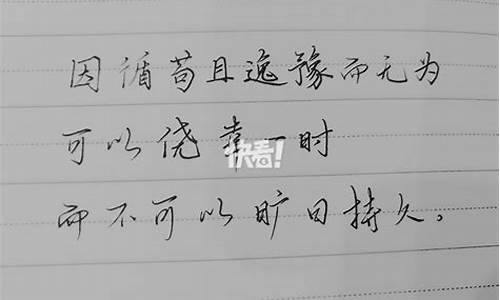 因循苟且逸豫而无为
可以侥幸一时
而不可以旷日持久。
快看!